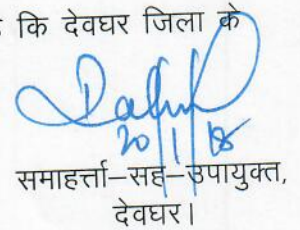 कि देवघर जिला के
20/1/18
समाहर्त्ता–सह–उपायुक्त,
देवघर।